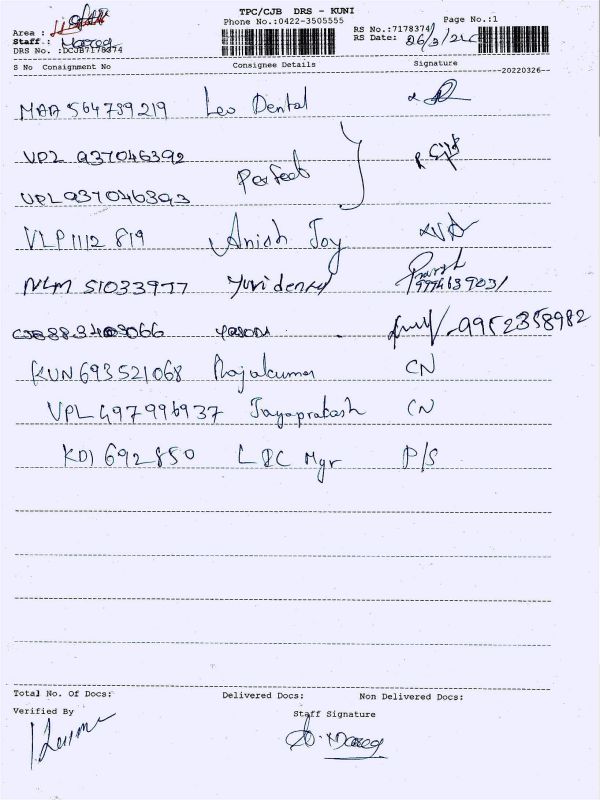 TPC/CJB DRS - KUNI
Phone No.:0422-3505555
Page No.:1
Area :
RS No.:7178374
Staff.:
RS Date: 26/3/22
DRS No. :DCJB7178374
S No Consignment No Consignee Details Signature
--20220326--
MAA 564739219 Leo Dental
VPL 937046392
Perfect
VPL 937046393
VLP1112 819 Anish Joy
NLM 51033977 Yuvi dental
9994639031
9952358982
KUN 693521068 Rajakumar CN
VPL 497996937 Jayaprakash CN
KDI 692850 LIC Mgr P/S
Total No. Of Docs: Delivered Docs: Non Delivered Docs:
Verified By
Staff Signature